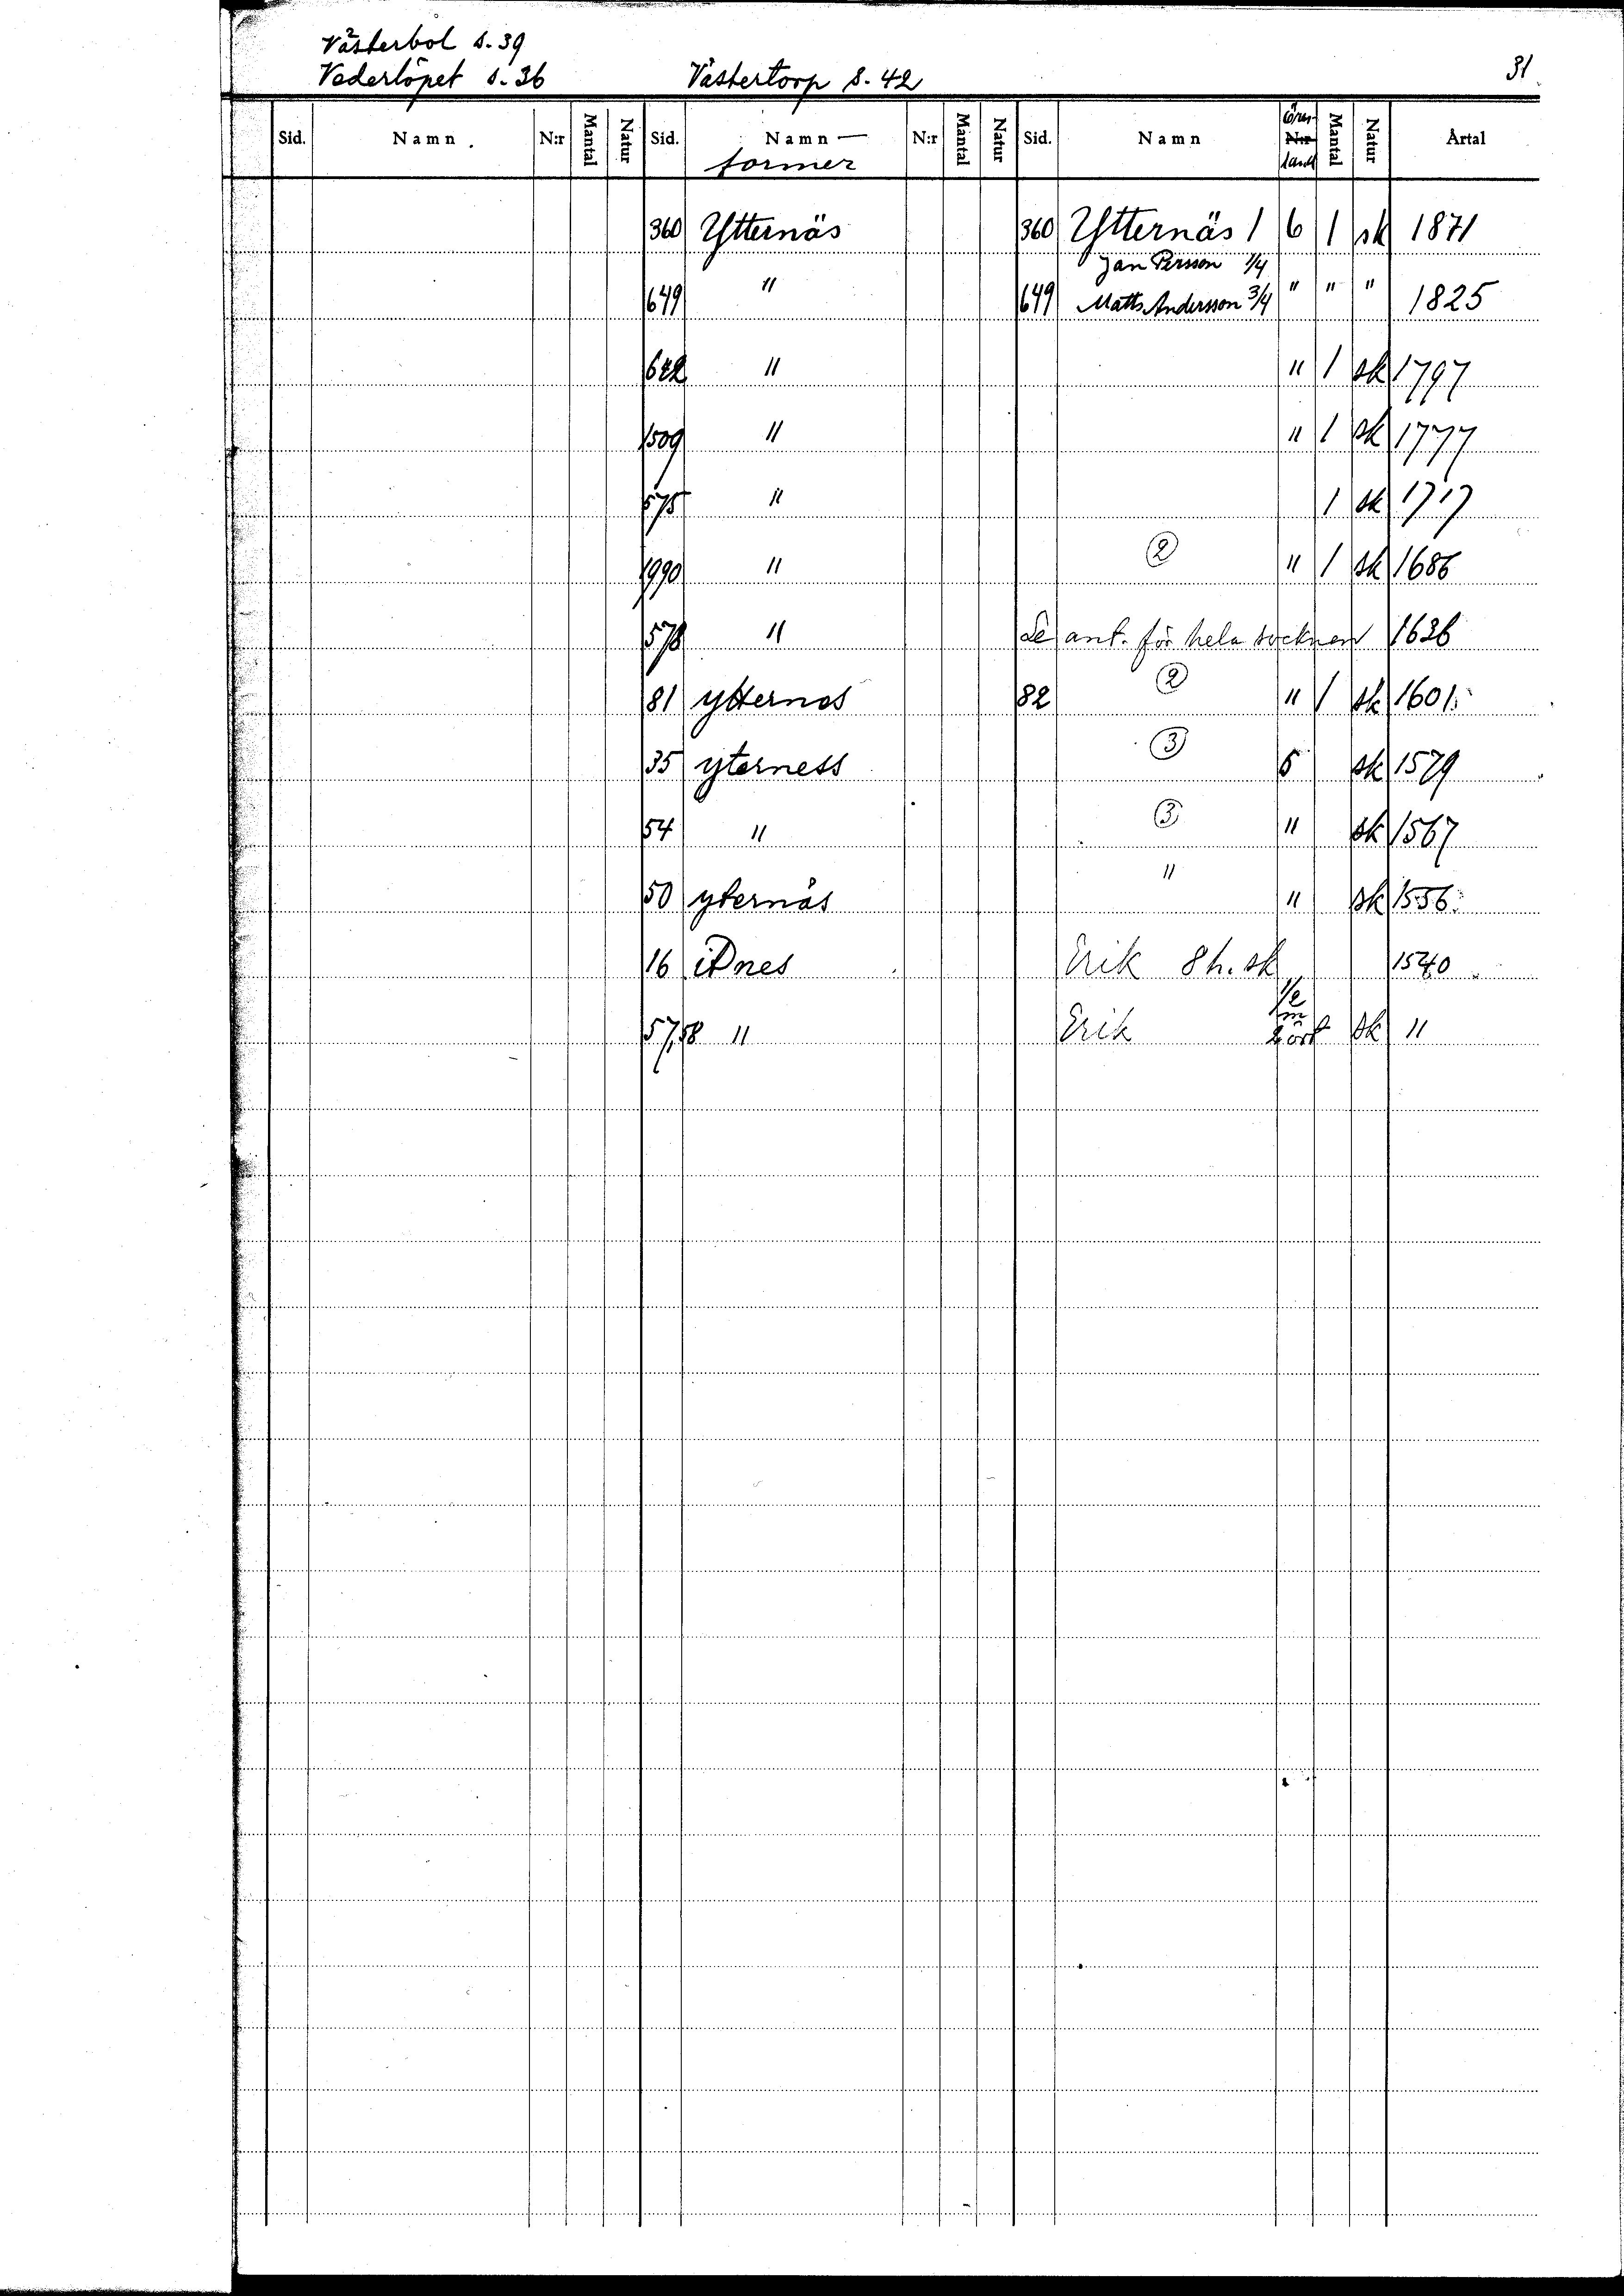 Västerbol s. 39
Vederlöpet s. 36 Västertorp s. 42 31
Sid. Namn N:r Mantal Natur Sid. Namn — former N:r Mantal Natur Sid. Namn Öres- N:r land Mantal Natur Årtal
360 Ytternäs 360 Ytternäs 1 6 1 sk 1871
Jan Persson 1/4
649 " 649 Matts Andersson 3/4 " " " 1825
" " 1 sk 1797
1509 " " 1 sk 1777
575 " 1 sk 1717
1990 " 2 " 1 sk 1686
578 " Se ant. för hela socknen 1636
81 ytternos 82 2 " 1 sk 1601
35 yterness 3 sk 1579
54 " 3 " sk 1567
50 yternäs " " sk 1556
16 Erik 8 h. sk 1540
57,58 " Erik 1/2 m 2 ört sk "